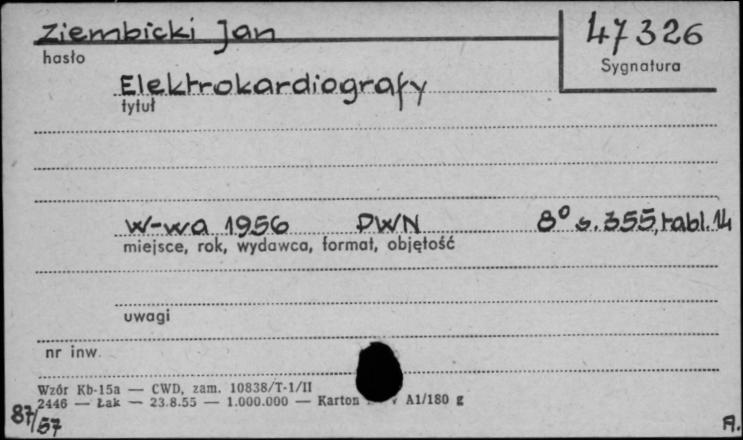 Ziembicki Jan
47326
hasło
Sygnatura
Elektrokardiografy
tytuł
W-wa 1956 PWN 8° s. 355, tabl. 14
miejsce, rok, wydawca, format, objętość
uwagi
nr inw.
Wzór Kb-15a — CWD, zam. 10838/T-1/II
2446 — Łak — 23.8.55 — 1.000.000 — Karton V A1/180 g
87/57
A.